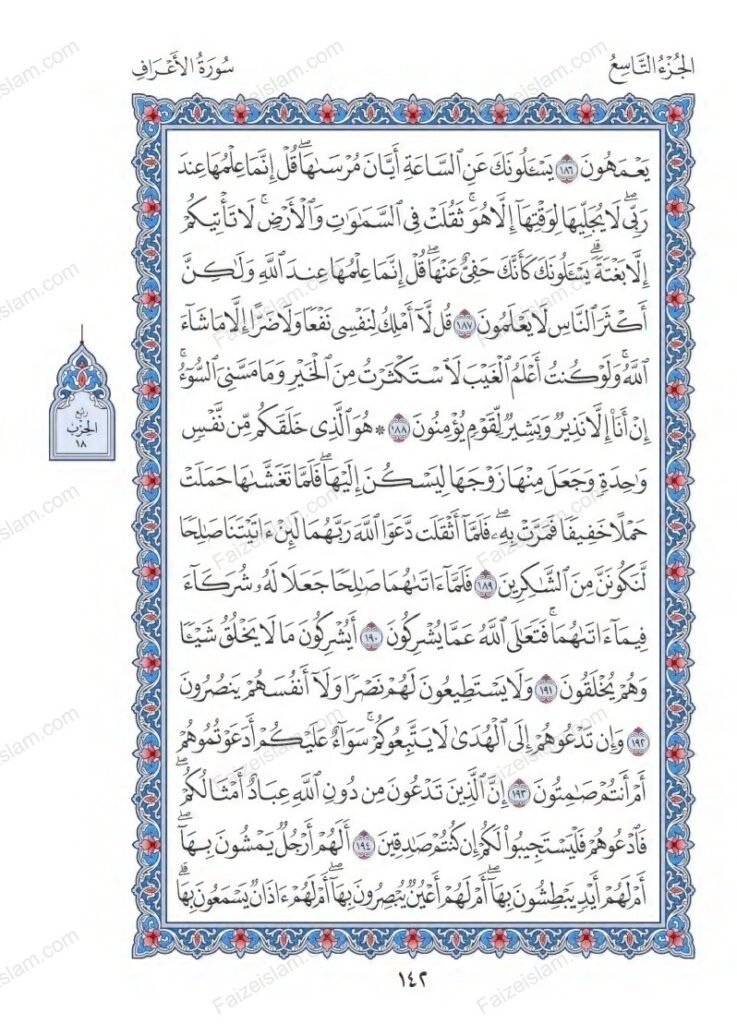 الجُزْءُ التَّاسِعُ
سُورَةُ الأَعْرَافِ
يَعْمَهُونَ ١٨٦ يَسْـَٔلُونَكَ عَنِ ٱلسَّاعَةِ أَيَّانَ مُرْسَىٰهَاۖ قُلْ إِنَّمَا عِلْمُهَا عِندَ
رَبِّيۖ لَا يُجَلِّيهَا لِوَقْتِهَآ إِلَّا هُوَۚ ثَقُلَتْ فِي ٱلسَّمَٰوَٰتِ وَٱلْأَرْضِۚ لَا تَأْتِيكُمْ
إِلَّا بَغْتَةًۗ يَسْـَٔلُونَكَ كَأَنَّكَ حَفِيٌّ عَنْهَاۖ قُلْ إِنَّمَا عِلْمُهَا عِندَ ٱللَّهِ وَلَٰكِنَّ
أَكْثَرَ ٱلنَّاسِ لَا يَعْلَمُونَ ١٨٧ قُل لَّآ أَمْلِكُ لِنَفْسِي نَفْعًا وَلَا ضَرًّا إِلَّا مَا شَآءَ
ٱللَّهُۚ وَلَوْ كُنتُ أَعْلَمُ ٱلْغَيْبَ لَٱسْتَكْثَرْتُ مِنَ ٱلْخَيْرِ وَمَا مَسَّنِيَ ٱلسُّوٓءُۚ
إِنْ أَنَا۠ إِلَّا نَذِيرٌ وَبَشِيرٌ لِّقَوْمٍ يُؤْمِنُونَ ١٨٨ * هُوَ ٱلَّذِي خَلَقَكُم مِّن نَّفْسٍ
وَٰحِدَةٍ وَجَعَلَ مِنْهَا زَوْجَهَا لِيَسْكُنَ إِلَيْهَاۖ فَلَمَّا تَغَشَّىٰهَا حَمَلَتْ
حَمْلًا خَفِيفًا فَمَرَّتْ بِهِۦۖ فَلَمَّآ أَثْقَلَت دَّعَوَا ٱللَّهَ رَبَّهُمَا لَئِنْ ءَاتَيْتَنَا صَٰلِحًا
لَّنَكُونَنَّ مِنَ ٱلشَّٰكِرِينَ ١٨٩ فَلَمَّآ ءَاتَىٰهُمَا صَٰلِحًا جَعَلَا لَهُۥ شُرَكَآءَ
فِيمَآ ءَاتَىٰهُمَاۚ فَتَعَٰلَى ٱللَّهُ عَمَّا يُشْرِكُونَ ١٩٠ أَيُشْرِكُونَ مَا لَا يَخْلُقُ شَيْـًٔا
وَهُمْ يُخْلَقُونَ ١٩١ وَلَا يَسْتَطِيعُونَ لَهُمْ نَصْرًا وَلَآ أَنفُسَهُمْ يَنصُرُونَ
١٩٢ وَإِن تَدْعُوهُمْ إِلَى ٱلْهُدَىٰ لَا يَتَّبِعُوكُمْۚ سَوَآءٌ عَلَيْكُمْ أَدَعَوْتُمُوهُمْ
أَمْ أَنتُمْ صَٰمِتُونَ ١٩٣ إِنَّ ٱلَّذِينَ تَدْعُونَ مِن دُونِ ٱللَّهِ عِبَادٌ أَمْثَالُكُمْۖ
فَٱدْعُوهُمْ فَلْيَسْتَجِيبُوا۟ لَكُمْ إِن كُنتُمْ صَٰدِقِينَ ١٩٤ أَلَهُمْ أَرْجُلٌ يَمْشُونَ بِهَآۖ
أَمْ لَهُمْ أَيْدٍ يَبْطِشُونَ بِهَآۖ أَمْ لَهُمْ أَعْيُنٌ يُبْصِرُونَ بِهَآۖ أَمْ لَهُمْ ءَاذَانٌ يَسْمَعُونَ بِهَاۗ
رُبُع
الحِزْب
١٨
١٤٢
Faizeislam.com